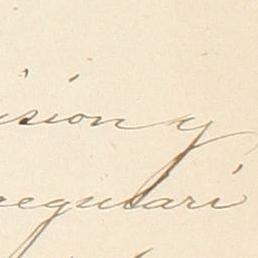 ision y
regulari